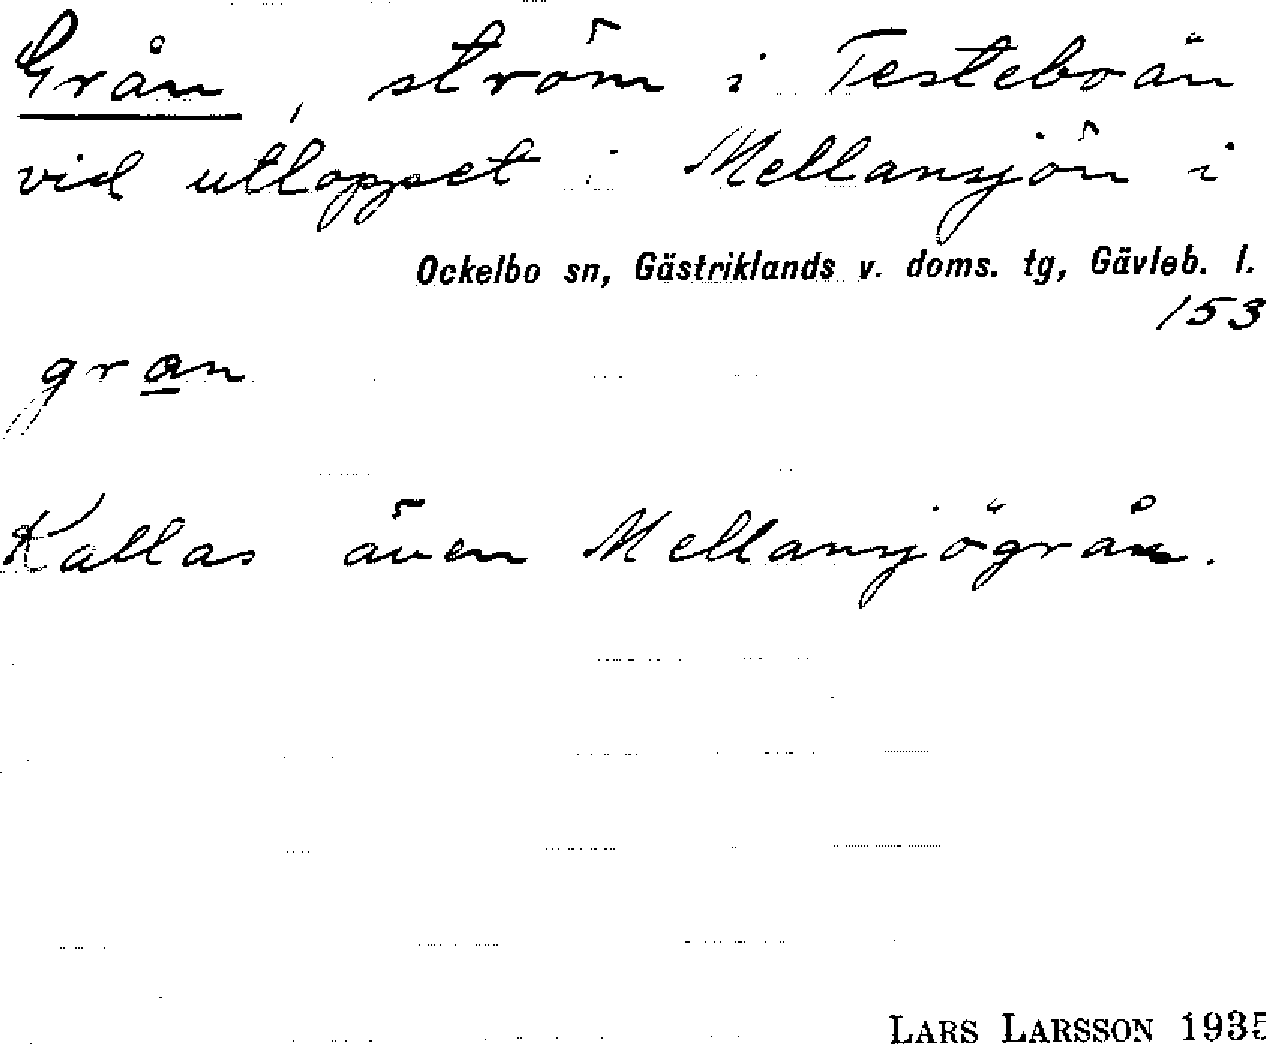 Grån, ström i Testeboån
vid utloppet i Mellansjön i
Ockelbo sn, Gästriklands v. doms. tg, Gävleb. l.
153
gran
Kallas även Mellansjögrån.
LARS LARSSON 1935